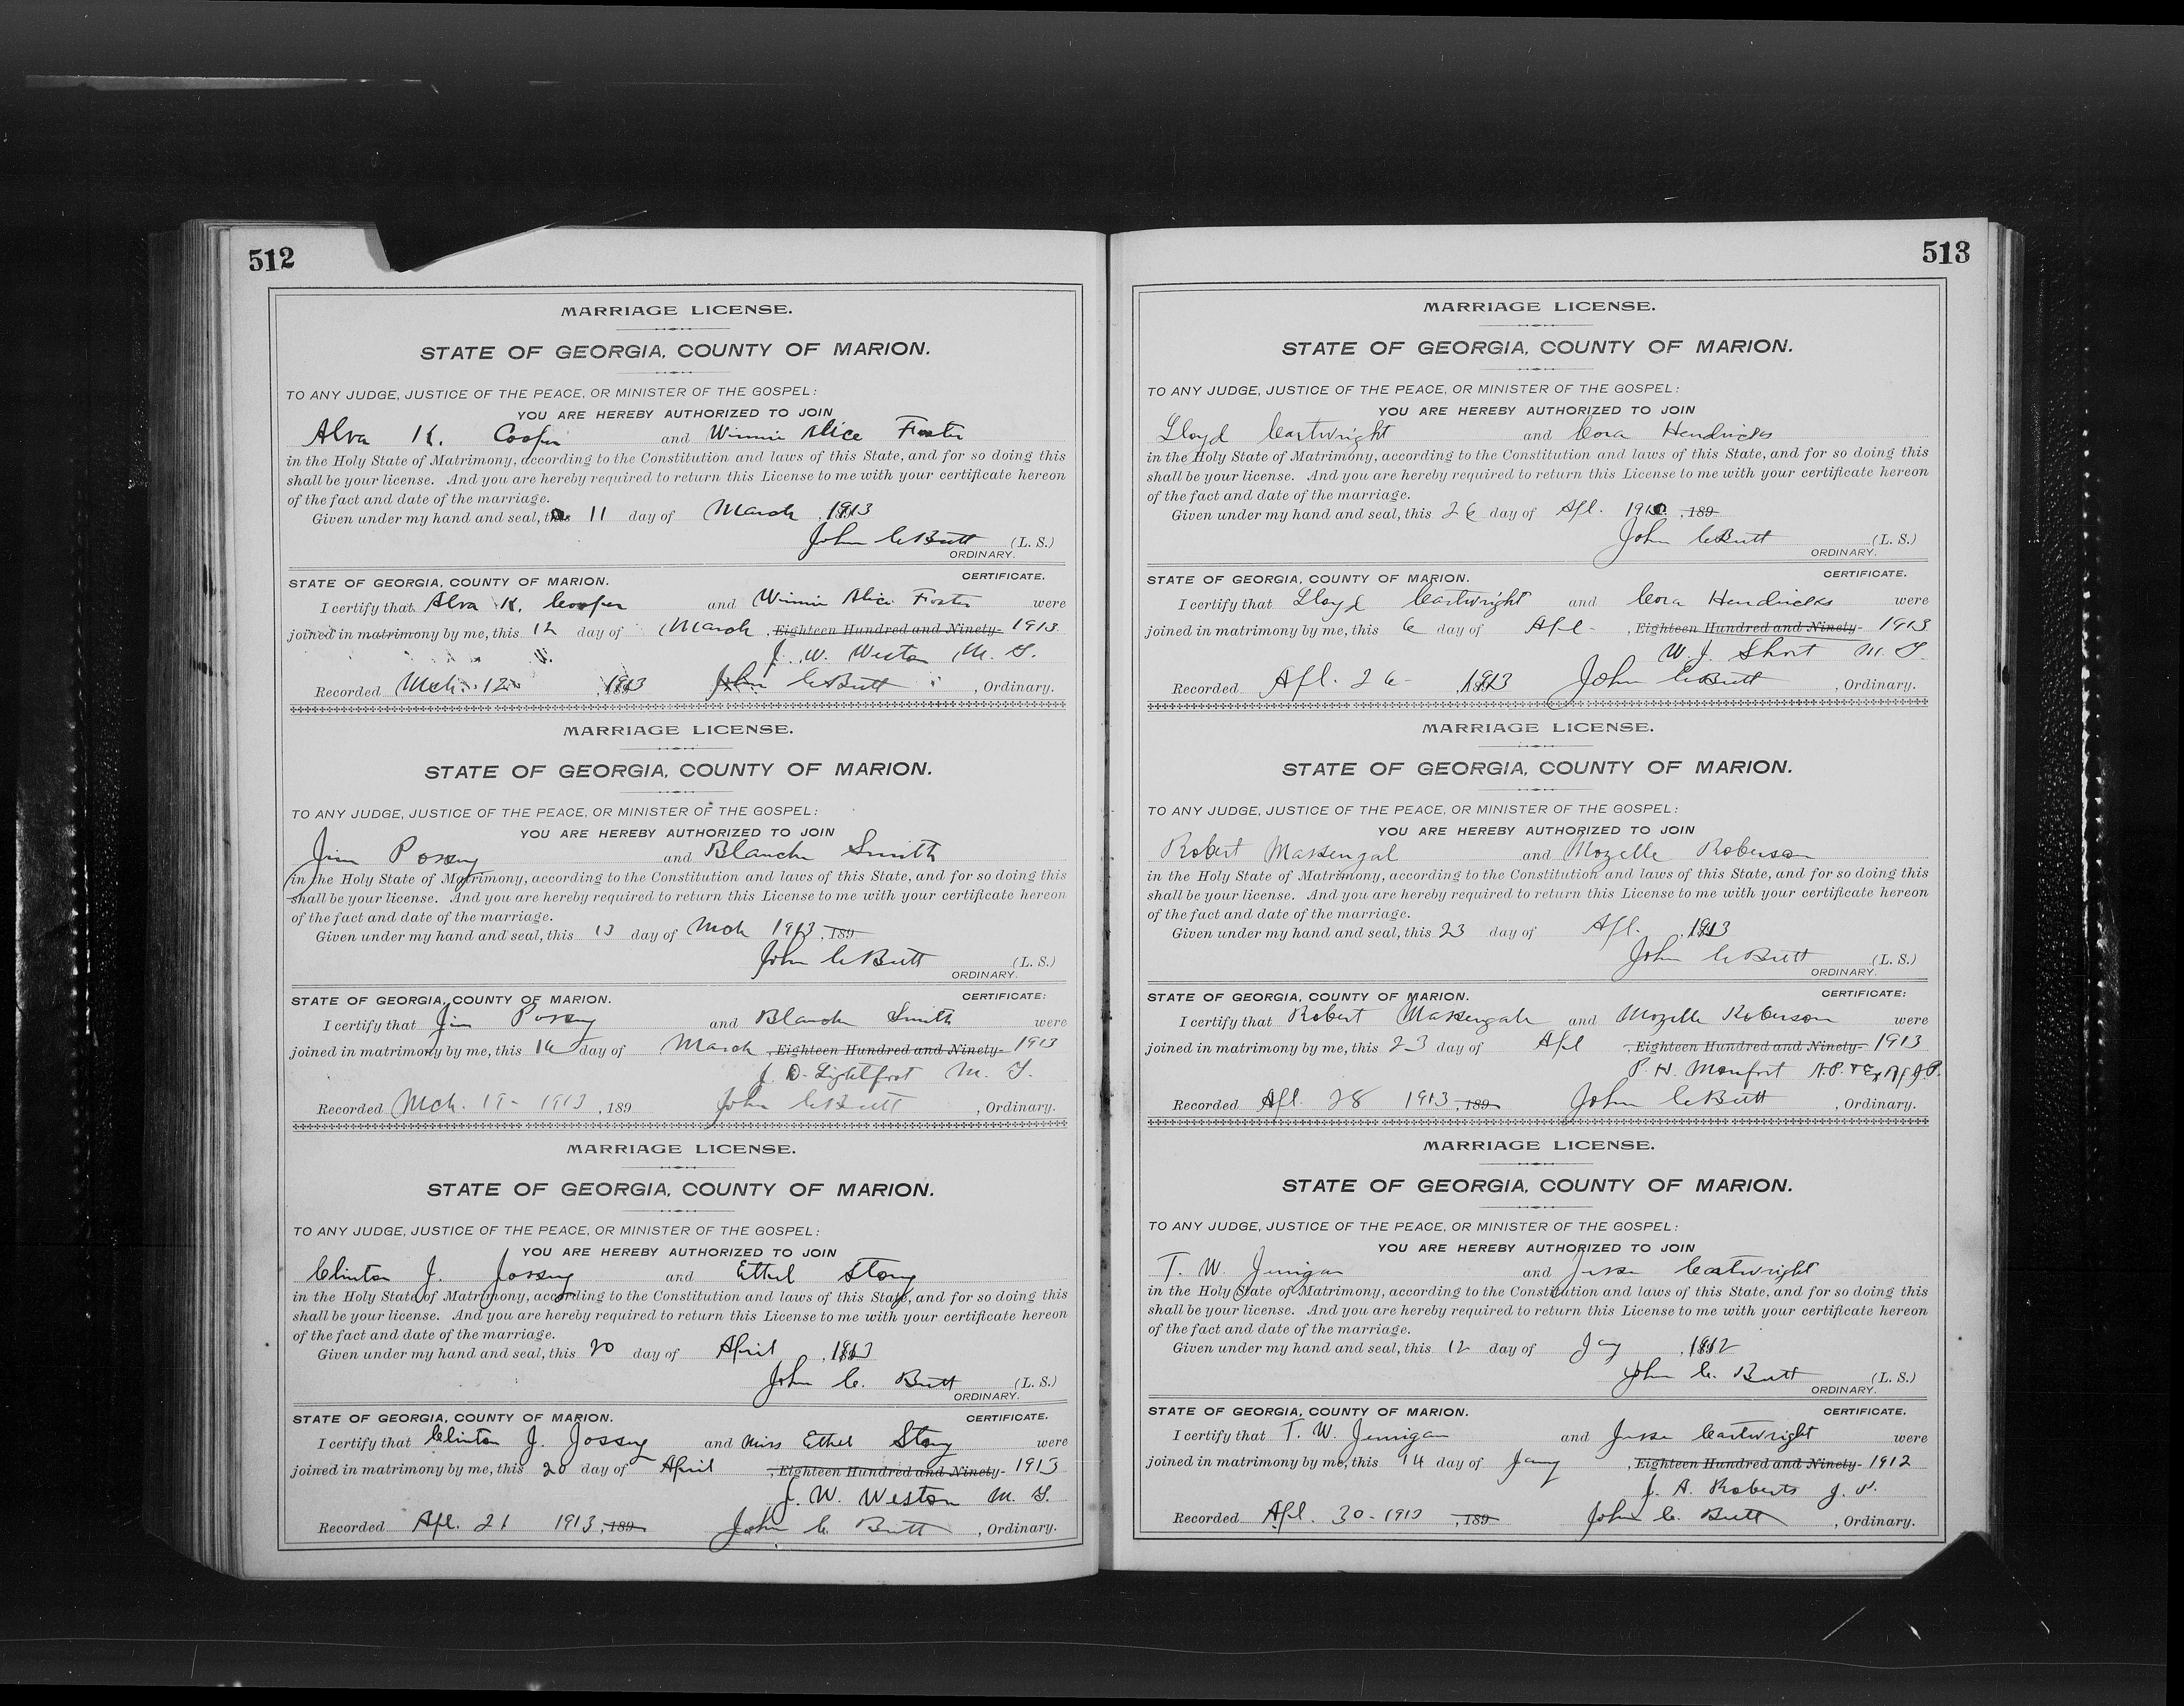 512
MARRIAGE LICENSE.
STATE OF GEORGIA, COUNTY OF MARION.
TO ANY JUDGE, JUSTICE OF THE PEACE, OR MINISTER OF THE GOSPEL:
YOU ARE HEREBY AUTHORIZED TO JOIN
Alva K. Cooper and Winnie Alice Foster
in the Holy State of Matrimony, according to the Constitution and laws of this State, and for so doing this
shall be your license. And you are hereby required to return this License to me with your certificate hereon
of the fact and date of the marriage.
Given under my hand and seal, this 11 day of March, 1913
John C Butt (L. S.)
ORDINARY.
STATE OF GEORGIA, COUNTY OF MARION. CERTIFICATE.
I certify that Alva K. Cooper and Winnie Alice Foster were
joined in matrimony by me, this 12 day of March, Eighteen Hundred and Ninety- 1913
J. W. Weston M. G.
Recorded Mch. 12 1913 John C Butt, Ordinary.
MARRIAGE LICENSE.
STATE OF GEORGIA, COUNTY OF MARION.
TO ANY JUDGE, JUSTICE OF THE PEACE, OR MINISTER OF THE GOSPEL:
YOU ARE HEREBY AUTHORIZED TO JOIN
Jim Posey and Blanche Smith
in the Holy State of Matrimony, according to the Constitution and laws of this State, and for so doing this
shall be your license. And you are hereby required to return this License to me with your certificate hereon
of the fact and date of the marriage.
Given under my hand and seal, this 13 day of Mch 1913, 189
John C Butt (L. S.)
ORDINARY.
STATE OF GEORGIA, COUNTY OF MARION. CERTIFICATE:
I certify that Jim Posey and Blanch Smith were
joined in matrimony by me, this 16 day of March, Eighteen Hundred and Ninety- 1913
J. D. Lightfoot M. G.
Recorded Mch. 19- 1913, 189 John C Butt, Ordinary.
MARRIAGE LICENSE.
STATE OF GEORGIA, COUNTY OF MARION.
TO ANY JUDGE, JUSTICE OF THE PEACE, OR MINISTER OF THE GOSPEL:
YOU ARE HEREBY AUTHORIZED TO JOIN
Clinton J. Jossey and Ethel Story
in the Holy State of Matrimony, according to the Constitution and laws of this State, and for so doing this
shall be your license. And you are hereby required to return this License to me with your certificate hereon
of the fact and date of the marriage.
Given under my hand and seal, this 20 day of April, 1913
John C. Butt (L. S.)
ORDINARY.
STATE OF GEORGIA, COUNTY OF MARION. CERTIFICATE.
I certify that Clinton J. Jossey and Miss Ethel Story were
joined in matrimony by me, this 20 day of April, Eighteen Hundred and Ninety- 1913
J. W. Weston M. G.
Recorded Apl. 21 1913, 189 John C. Butt, Ordinary.
513
MARRIAGE LICENSE.
STATE OF GEORGIA, COUNTY OF MARION.
TO ANY JUDGE, JUSTICE OF THE PEACE, OR MINISTER OF THE GOSPEL:
YOU ARE HEREBY AUTHORIZED TO JOIN
Lloyd Cartwright and Cora Hendricks
in the Holy State of Matrimony, according to the Constitution and laws of this State, and for so doing this
shall be your license. And you are hereby required to return this License to me with your certificate hereon
of the fact and date of the marriage.
Given under my hand and seal, this 26 day of Apl. , 189
John C Butt (L. S.)
ORDINARY.
STATE OF GEORGIA, COUNTY OF MARION. CERTIFICATE.
I certify that Lloyd Cartwright and Cora Hendricks were
joined in matrimony by me, this 6 day of Apl-, Eighteen Hundred and Ninety- 1913
W. J. Short M. G.
Recorded Apl. 26- 1913 John C Butt, Ordinary.
MARRIAGE LICENSE.
STATE OF GEORGIA, COUNTY OF MARION.
TO ANY JUDGE, JUSTICE OF THE PEACE, OR MINISTER OF THE GOSPEL:
YOU ARE HEREBY AUTHORIZED TO JOIN
Robert Massengal and Mozelle Roberson
in the Holy State of Matrimony, according to the Constitution and laws of this State, and for so doing this
shall be your license. And you are hereby required to return this License to me with your certificate hereon
of the fact and date of the marriage.
Given under my hand and seal, this 23 day of Apl. , 1913
John C Butt (L. S.)
ORDINARY.
STATE OF GEORGIA, COUNTY OF MARION. CERTIFICATE:
I certify that Robert Massengale and Mozelle Roberson were
joined in matrimony by me, this 23 day of Apl, Eighteen Hundred and Ninety- 1913
P. H. Monfort N.P. & Ex Off J.P.
Recorded Apl. 28 1913, 189 John C Butt, Ordinary.
MARRIAGE LICENSE.
STATE OF GEORGIA, COUNTY OF MARION.
TO ANY JUDGE, JUSTICE OF THE PEACE, OR MINISTER OF THE GOSPEL:
YOU ARE HEREBY AUTHORIZED TO JOIN
T. W. Jernigan and Jessie Cartwright
in the Holy State of Matrimony, according to the Constitution and laws of this State, and for so doing this
shall be your license. And you are hereby required to return this License to me with your certificate hereon
of the fact and date of the marriage.
Given under my hand and seal, this 12 day of Jany, 1912
John C. Butt (L. S.)
ORDINARY.
STATE OF GEORGIA, COUNTY OF MARION. CERTIFICATE.
I certify that T. W. Jernigan and Jessie Cartwright were
joined in matrimony by me, this 14 day of Jany, Eighteen Hundred and Ninety- 1912
J. A. Roberts J. P.
Recorded Apl. 30-1913, 189 John C. Butt, Ordinary.